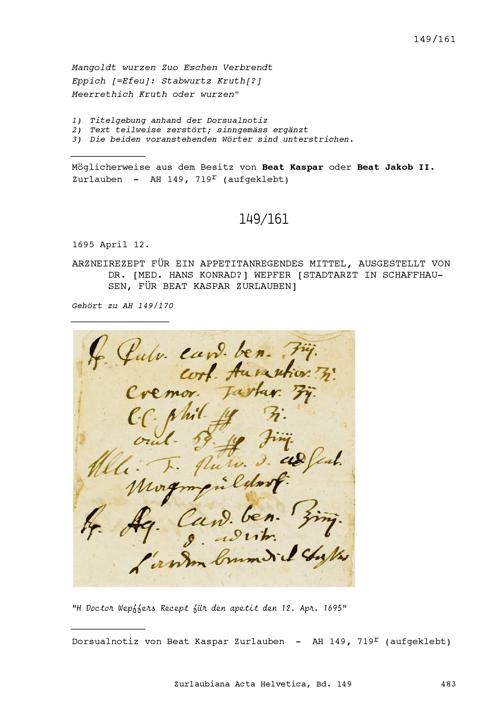 149/161
Mangoldt wurzen Zuo Eschen Verbrendt
Eppich [=Efeu]: Stabwurtz Kruth[?]
Meerrethich Kruth oder wurzen"
1) Titelgebung anhand der Dorsualnotiz
2) Text teilweise zerstört; sinngemäss ergänzt
3) Die beiden voranstehenden Wörter sind unterstrichen.
Möglicherweise aus dem Besitz von Beat Kaspar oder Beat Jakob II.
Zurlauben - AH 149, 719r (aufgeklebt)
149/161
1695 April 12.
ARZNEIREZEPT FÜR EIN APPETITANREGENDES MITTEL, AUSGESTELLT VON
DR. [MED. HANS KONRAD?] WEPFER [STADTARZT IN SCHAFFHAU-
SEN, FÜR BEAT KASPAR ZURLAUBEN]
Gehört zu AH 149/170
Pulv. card. ben.
cort. Aurantior.
Cremor. Tartar.
C.C. phil.
ad
Aq. Card. ben.
"H Doctor Wepffers Recept für den apetit den 12. Apr. 1695"
Dorsualnotiz von Beat Kaspar Zurlauben - AH 149, 719r (aufgeklebt)
Zurlaubiana Acta Helvetica, Bd. 149 483